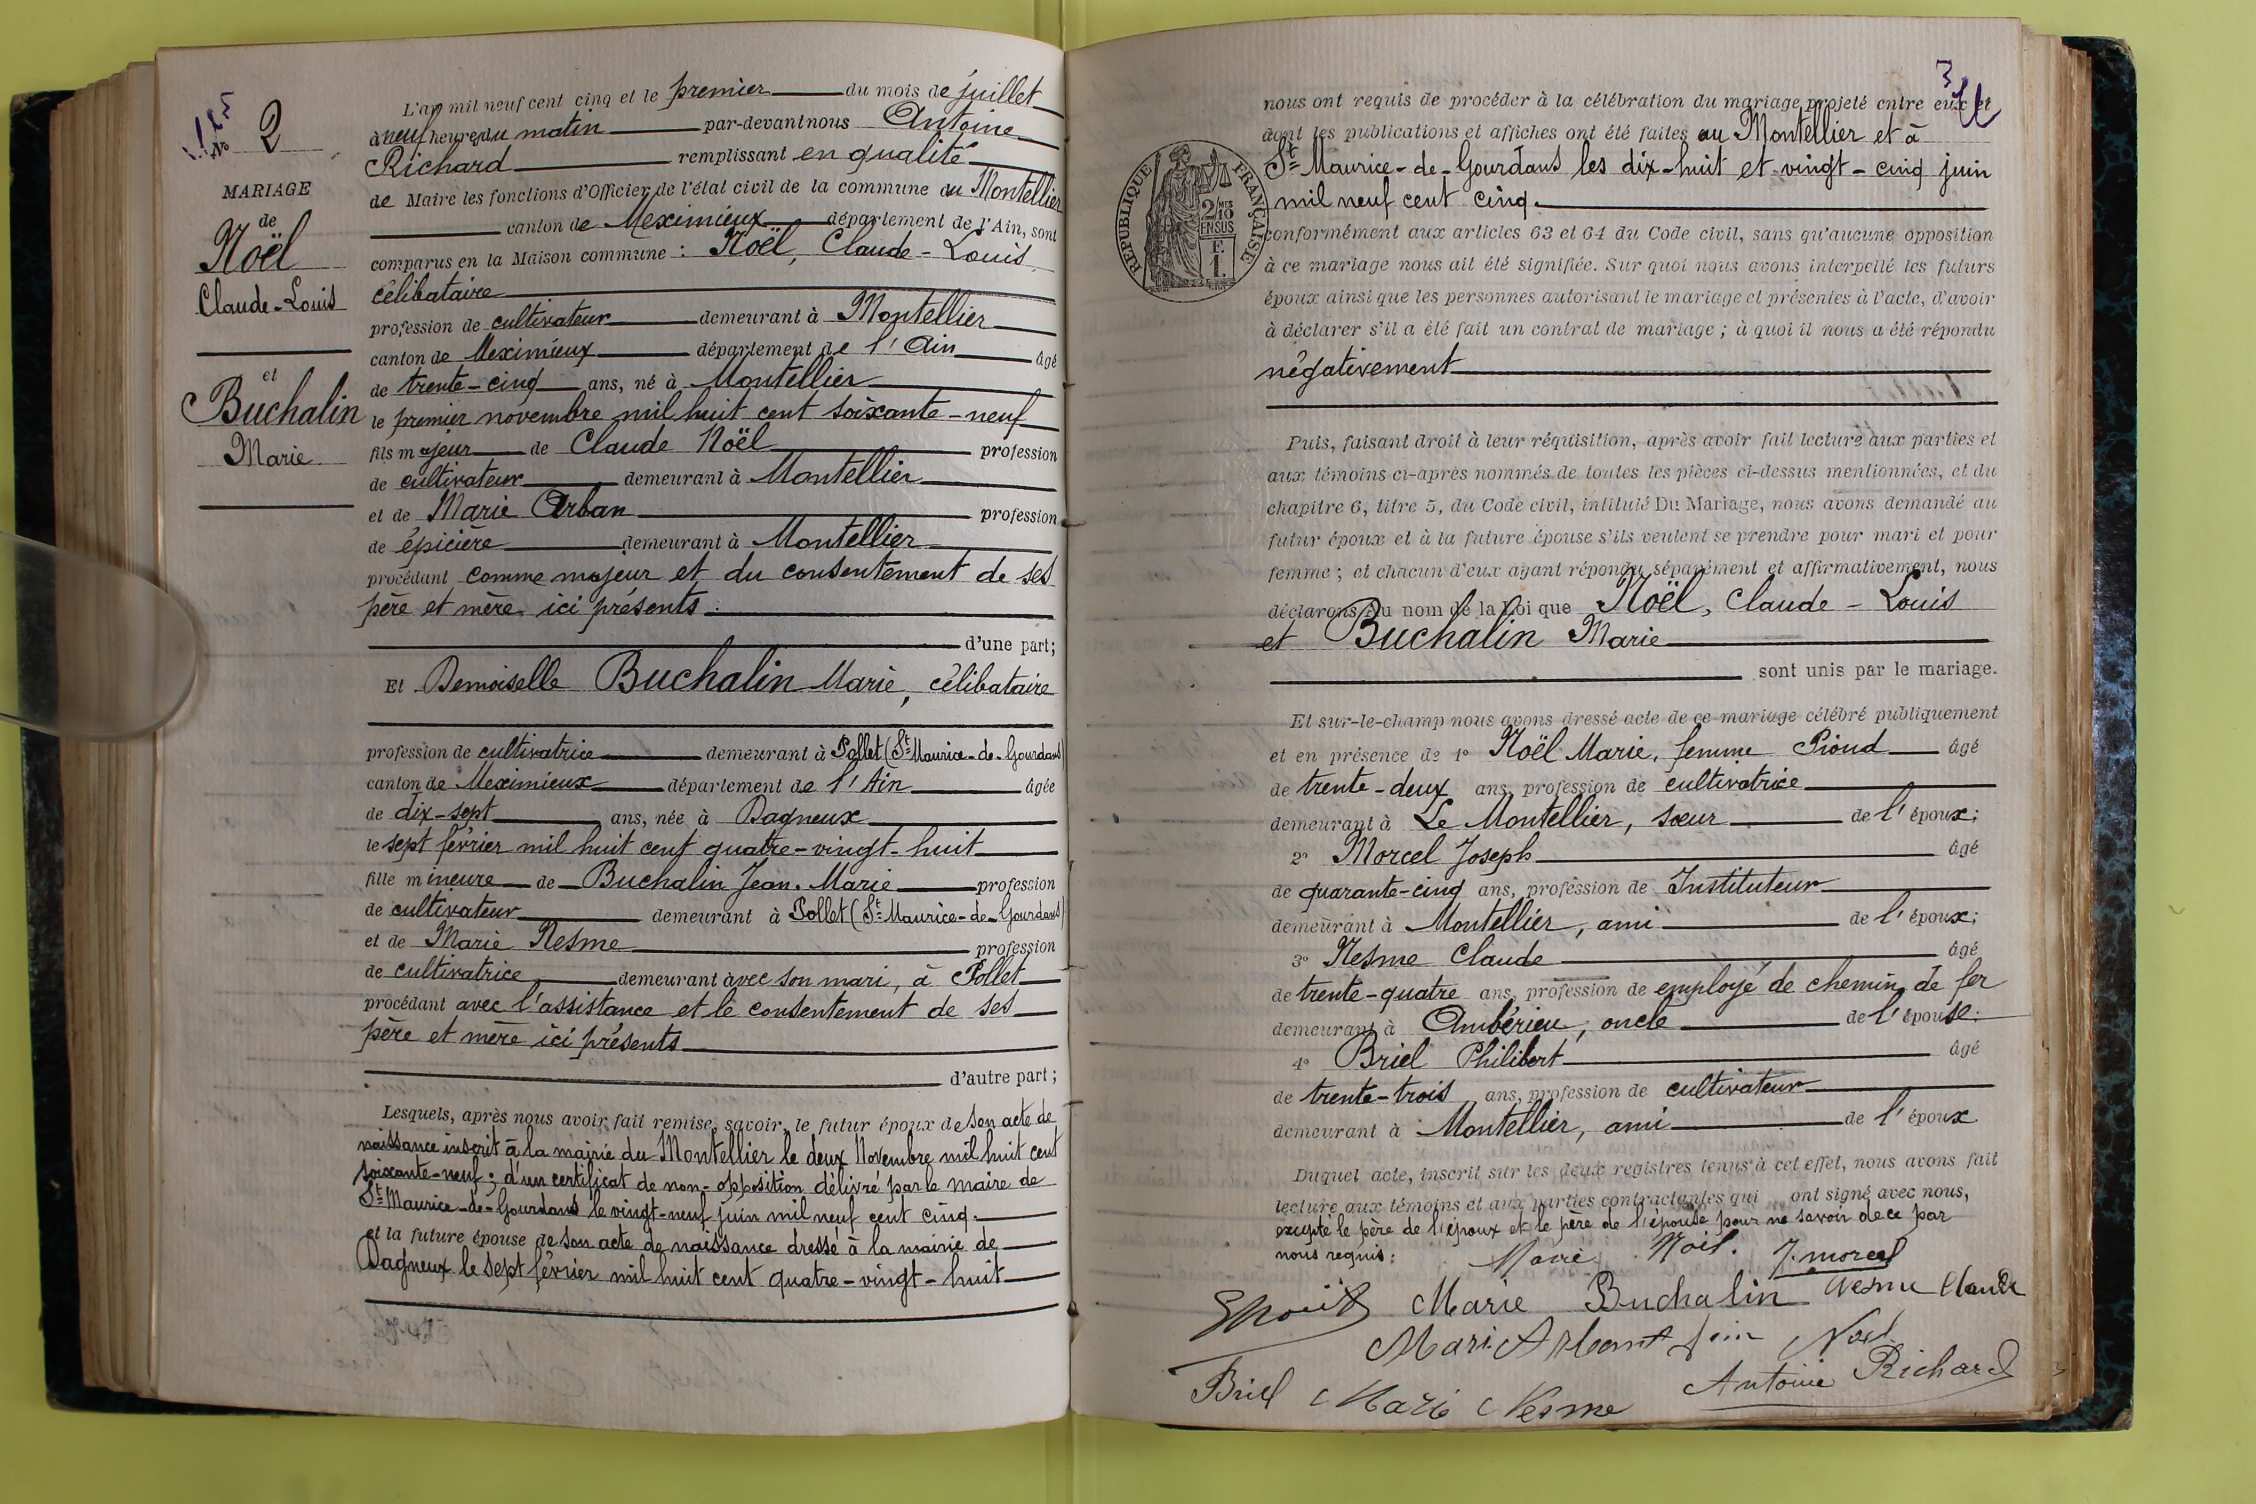 No 2
MARIAGE
de
Noël
Claude-Louis
et
Buchalin
Marie
L'an mil neuf cent cinq et le premier du mois de juillet
à neuf heures du matin par-devant nous Antoine
Richard remplissant en qualité
de Maire les fonctions d'Officier de l'état civil de la commune du Montellier
canton de Meximieux département de l'Ain, sont
comparus en la Maison commune : Noël, Claude-Louis
célibataire
profession de cultivateur demeurant à Montellier
canton de Meximieux département de l'Ain âgé
de trente-cinq ans, né à Montellier
le premier novembre mil huit cent soixante-neuf
fils majeur de Claude Noël profession
de cultivateur demeurant à Montellier
et de Marie Arban profession
de épicière demeurant à Montellier
procédant comme majeur et du consentement de ses
père et mère ici présents.
d'une part;
Et Demoiselle Buchalin Marie, célibataire
profession de cultivatrice demeurant à Pollet (St-Maurice-de-Gourdans)
canton de Meximieux département de l'Ain âgée
de dix-sept ans, née à Dagneux
le sept février mil huit cent quatre-vingt-huit
fille mineure de Buchalin Jean-Marie profession
de cultivateur demeurant à Pollet (St-Maurice-de-Gourdans)
et de Marie Nesme profession
de cultivatrice demeurant avec son mari, à Pollet
procédant avec l'assistance et le consentement de ses
père et mère ici présents
d'autre part;
Lesquels, après nous avoir fait remise, savoir, le futur époux de son acte de
naissance inscrit à la mairie du Montellier le deux Novembre mil huit cent
soixante-neuf; d'un certificat de non-opposition délivré par le maire de
St-Maurice-de-Gourdans le vingt-neuf juin mil neuf cent cinq.
et la future épouse de son acte de naissance dressé à la mairie de
Dagneux le sept février mil huit cent quatre-vingt-huit
nous ont requis de procéder à la célébration du mariage projeté entre eux et
dont les publications et affiches ont été faites au Montellier et à
St-Maurice-de-Gourdans les dix-huit et vingt-cinq juin
mil neuf cent cinq.
RÉPUBLIQUE FRANÇAISE
2/10 MES
EN SUS
F.
1.
conformément aux articles 63 et 64 du Code civil, sans qu'aucune opposition
à ce mariage nous ait été signifiée. Sur quoi nous avons interpellé les futurs
époux ainsi que les personnes autorisant le mariage et présentes à l'acte, d'avoir
à déclarer s'il a été fait un contrat de mariage; à quoi il nous a été répondu
négativement
Puis, faisant droit à leur réquisition, après avoir fait lecture aux parties et
aux témoins ci-après nommés de toutes les pièces ci-dessus mentionnées, et du
chapitre 6, titre 5, du Code civil, intitulé Du Mariage, nous avons demandé au
futur époux et à la future épouse s'ils veulent se prendre pour mari et pour
femme; et chacun d'eux ayant répondu séparément et affirmativement, nous
déclarons au nom de la Loi que Noël, Claude-Louis
et Buchalin Marie
sont unis par le mariage.
Et sur-le-champ nous avons dressé acte de ce mariage célébré publiquement
et en présence de 1° Noël Marie, femme Pioud âgé
de trente-deux ans, profession de cultivatrice
demeurant à Le Montellier, sœur de l'époux;
2° Morcel Joseph âgé
de quarante-cinq ans, profession de Instituteur
demeurant à Montellier, ami de l'époux;
3° Nesme Claude âgé
de trente-quatre ans, profession de employé de chemin de fer
demeurant à Ambérieu, oncle de l'épouse;
4° Briel Philibert âgé
de trente-trois ans, profession de cultivateur
demeurant à Montellier, ami de l'époux
Duquel acte, inscrit sur les deux registres tenus à cet effet, nous avons fait
lecture aux témoins et aux parties contractantes qui ont signé avec nous,
excepté le père de l'époux et le père de l'épouse pour ne savoir de ce par
nous requis:
Marie Noël. J. Morcel
Marie Buchalin Nesme Claude
Noël
Briel Marie Nesme Antoine Richard